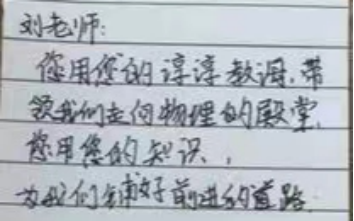 刘老师:
您用您的谆谆教诲,带
领我们走向物理的殿堂,
您用您的知识,
为我们铺好前进的道路.